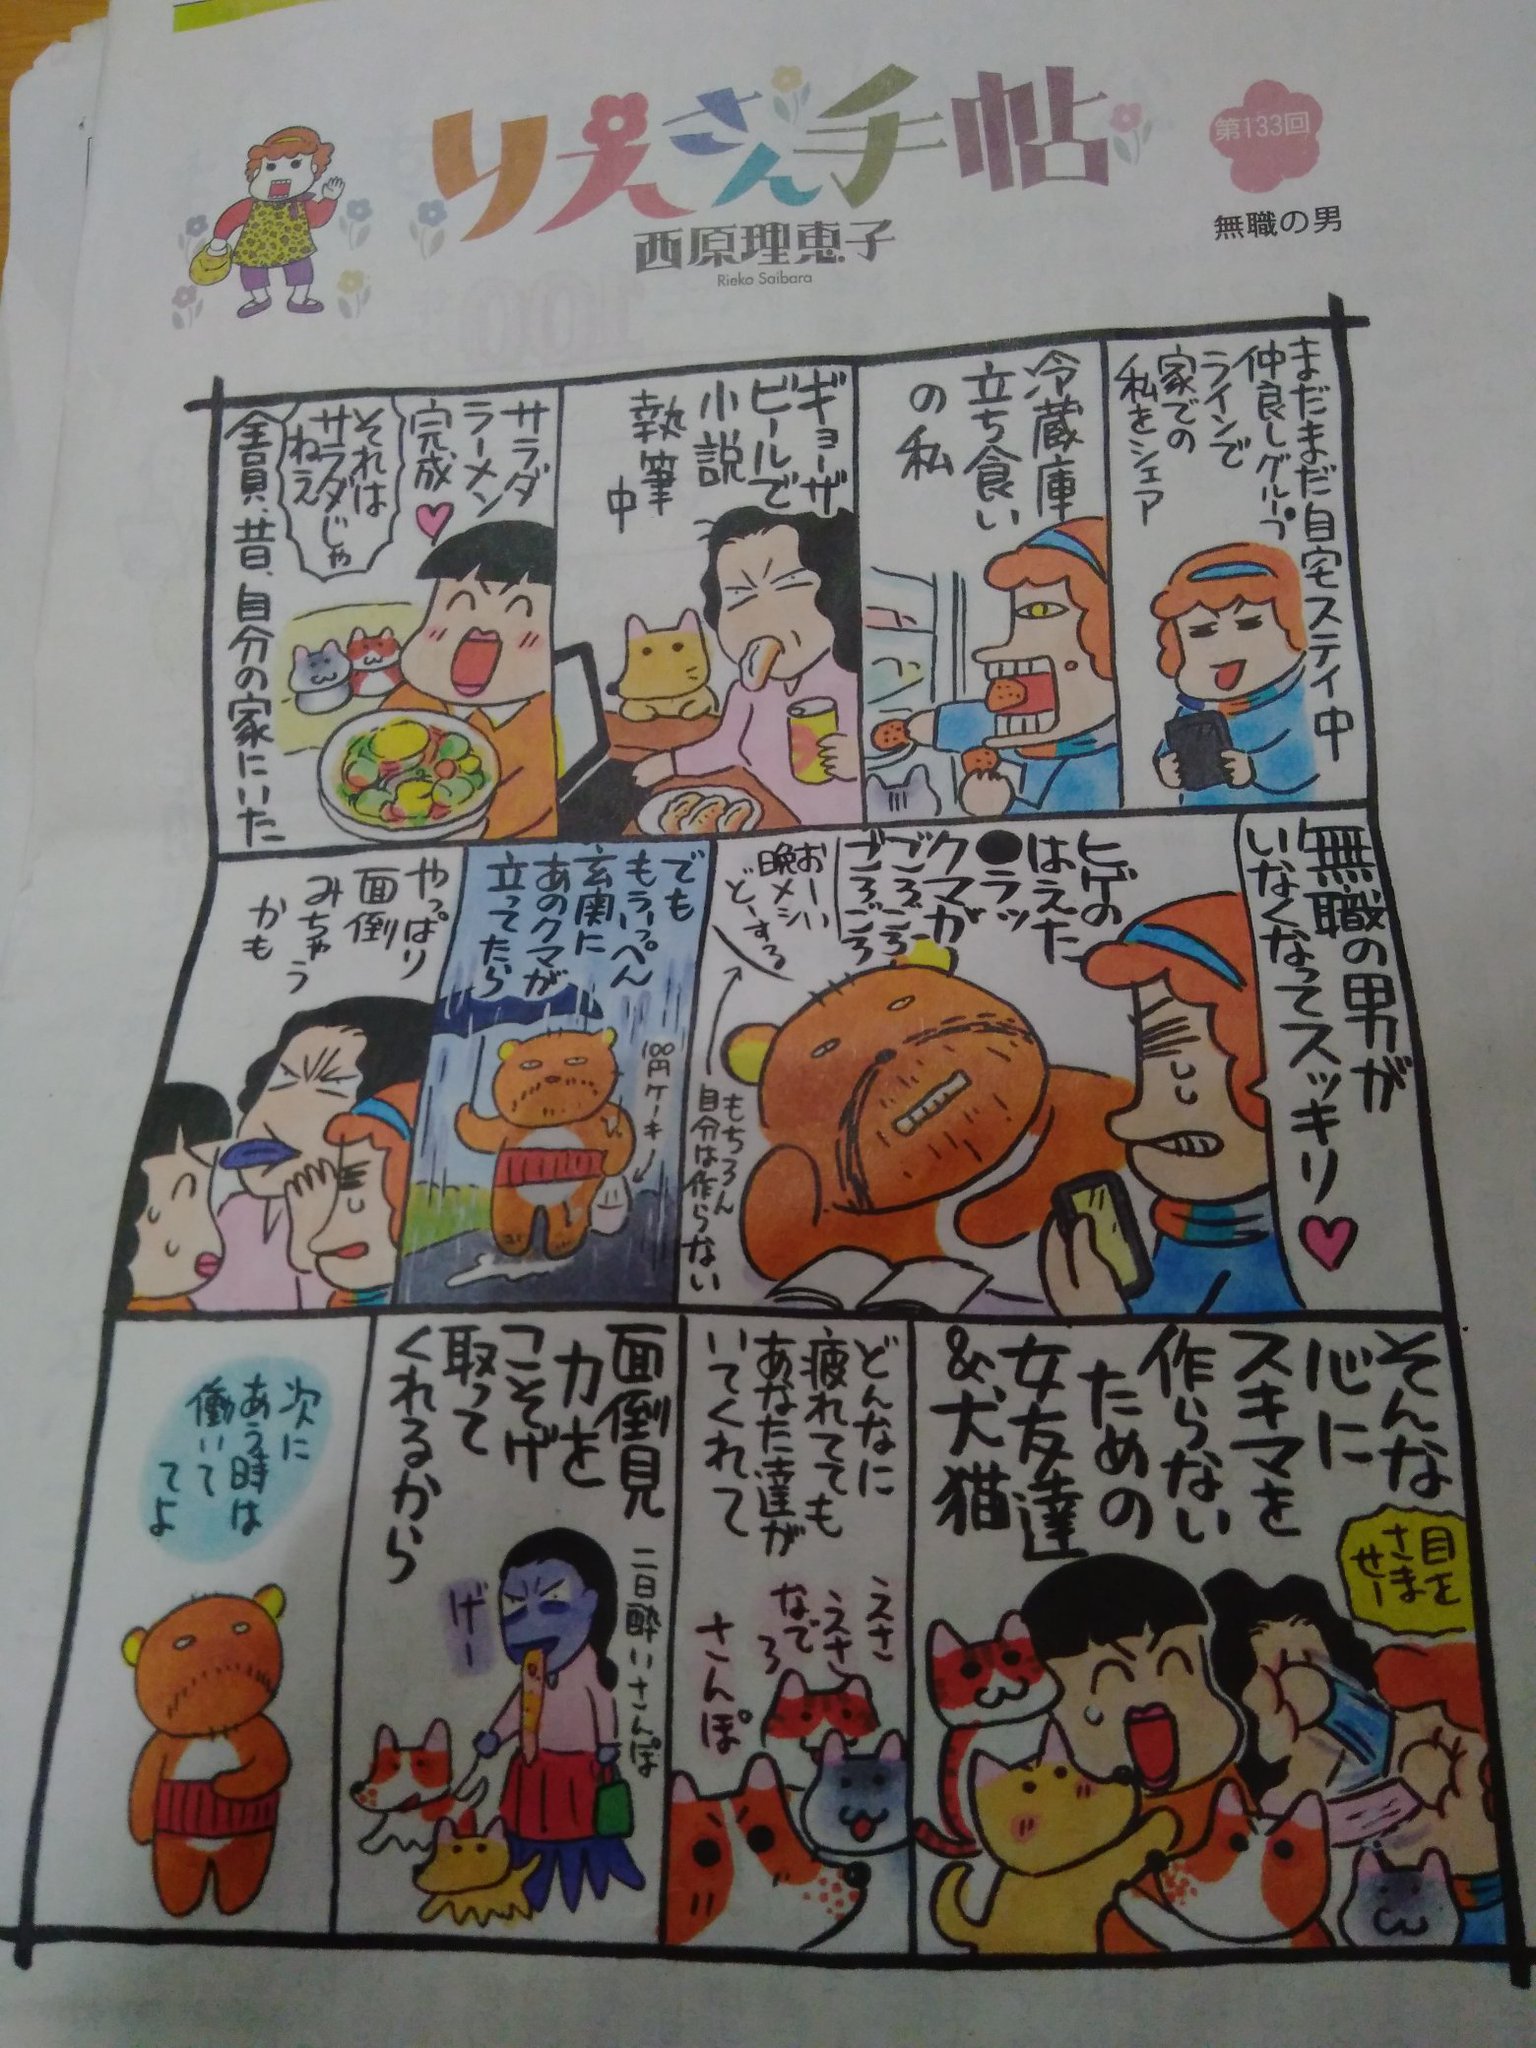 りえさん手帖
西原理恵子
Rieko Saibara
第133回
無職の男
まだまだ自宅ステイ中
仲良しグループ
ラインで
家での
私をシェア
冷蔵庫
立ち食い
の私
ギョーザ
ビールで
小説
執筆
中
サラダ
ラーメン
完成♥
それは
サラダじゃ
ねえ
全員、昔、自分の家にいた
無職の男が
いなくなってスッキリ♥
ヒゲの
はえた
●ラッ
クマが
ごろごろ
ごろごろ
おーい
晩メシ
どーする
もちろん
自分は作らない
でも
もういっぺん
玄関に
あのクマが
立ってたら
100円ケーキ
やっぱり
面倒
みちゃう
かも
そんな
心に
スキマを
作らない
ための
女友達
&犬猫
目を
さませー
どんなに
疲れてても
あなた達が
いてくれて
えさ
えさ
なでろ
さんぽ
面倒見
力を
こそげ
取って
くれるから
二日酔いさんぽ
げー
次に
あう時は
働いて
てよ